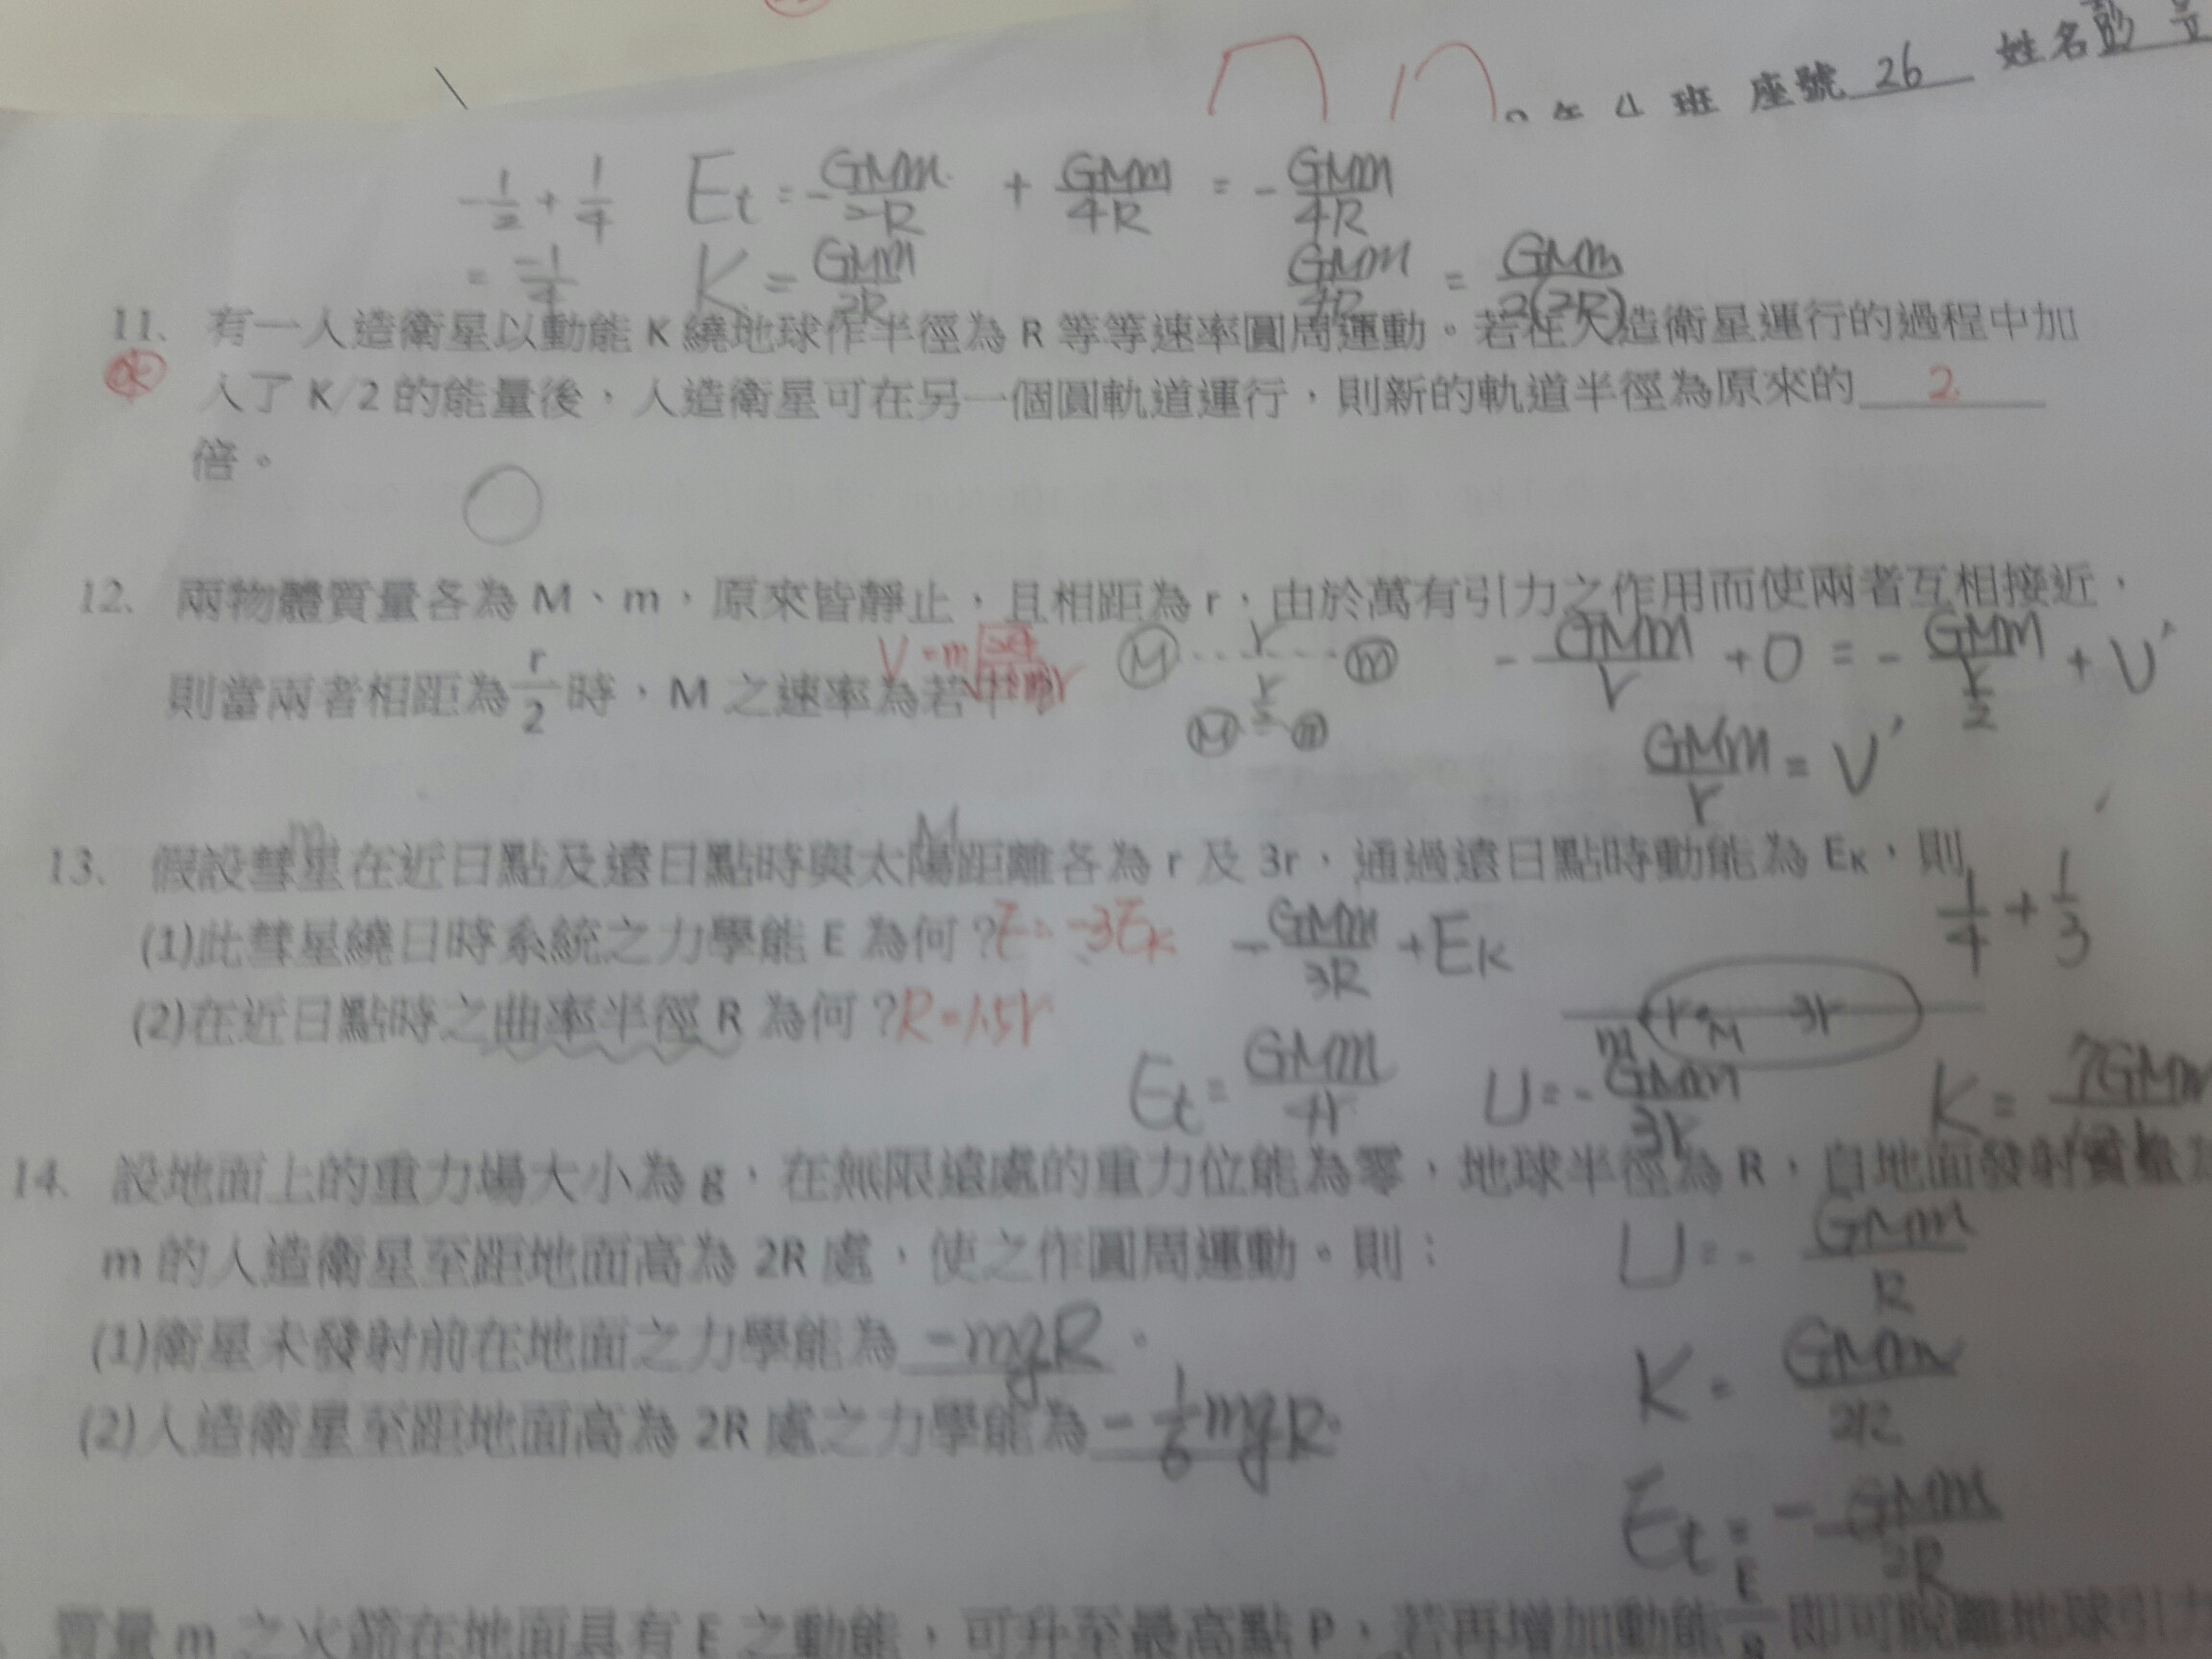 班 座號 26 姓名
-1/2 + 1/4 Et = - GMm/2R + GMm/4R = - GMm/4R
= -1/4 K = GMm/2R GMm/4R = GMm/2(2R)
11. 有一人造衛星以動能 K 繞地球作半徑為 R 等等速率圓周運動。若在人造衛星運行的過程中加
入了 K/2 的能量後,人造衛星可在另一個圓軌道運行,則新的軌道半徑為原來的 2
倍。
12. 兩物體質量各為 M、m,原來皆靜止,且相距為 r,由於萬有引力之作用而使兩者互相接近,
M r m - GMm/r + 0 = - GMm/(r/2) + U'
則當兩者相距為 r/2 時,M 之速率為若
M r/2 m
GMm/r = U'
m M
13. 假設彗星在近日點及遠日點時與太陽距離各為 r 及 3r,通過遠日點時動能為 EK,則
(1)此彗星繞日時系統之力學能 E 為何?E=-3EK - GMm/3R + EK 1/4 + 1/3
(2)在近日點時之曲率半徑 R 為何?R=1.5r
r M 3r
m
Et = GMm/4r U = - GMm/3r K = 7GMm
14. 設地面上的重力場大小為 g,在無限遠處的重力位能為零,地球半徑為 R,自地面發射質量
m 的人造衛星至距地面高為 2R 處,使之作圓周運動。則:
U = - GMm/R
(1)衛星未發射前在地面之力學能為 -mgR。
K = GMm/2R
(2)人造衛星至距地面高為 2R 處之力學能為 -1/6 mgR。
Et = - GMm/2R
質量 m 之火箭在地面具有 E 之動能,可升至最高點 P,若再增加動能 即可脫離地球引力